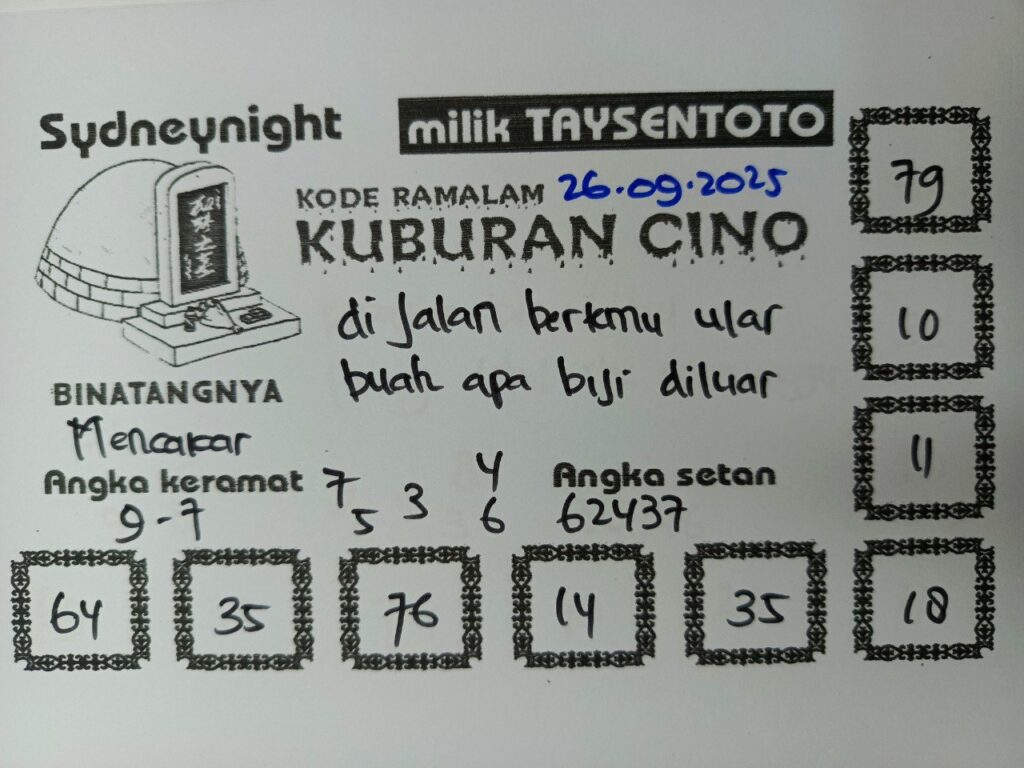 Sydneynight
milik TAYSENTOTO
KODE RAMALAM 26.09.2025
KUBURAN CINO
di jalan bertemu ular
buah apa biji diluar
BINATANGNYA
Mencakar
Angka keramat
9-7
7 3 4
5 6
Angka setan
62437
79
10
11
18
64 35 76 14 35